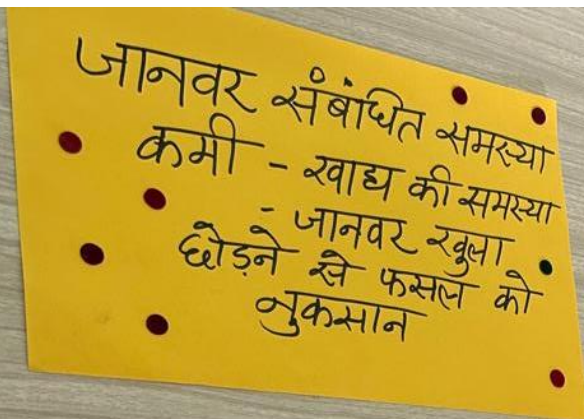 जानवर संबंधित समस्या
कमी - खाद्य की समस्या
- जानवर खुला
छोड़ने से फसल को
नुकसान